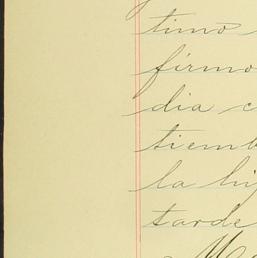 timo
firmo
dia c
tiemb
la hij
tarde